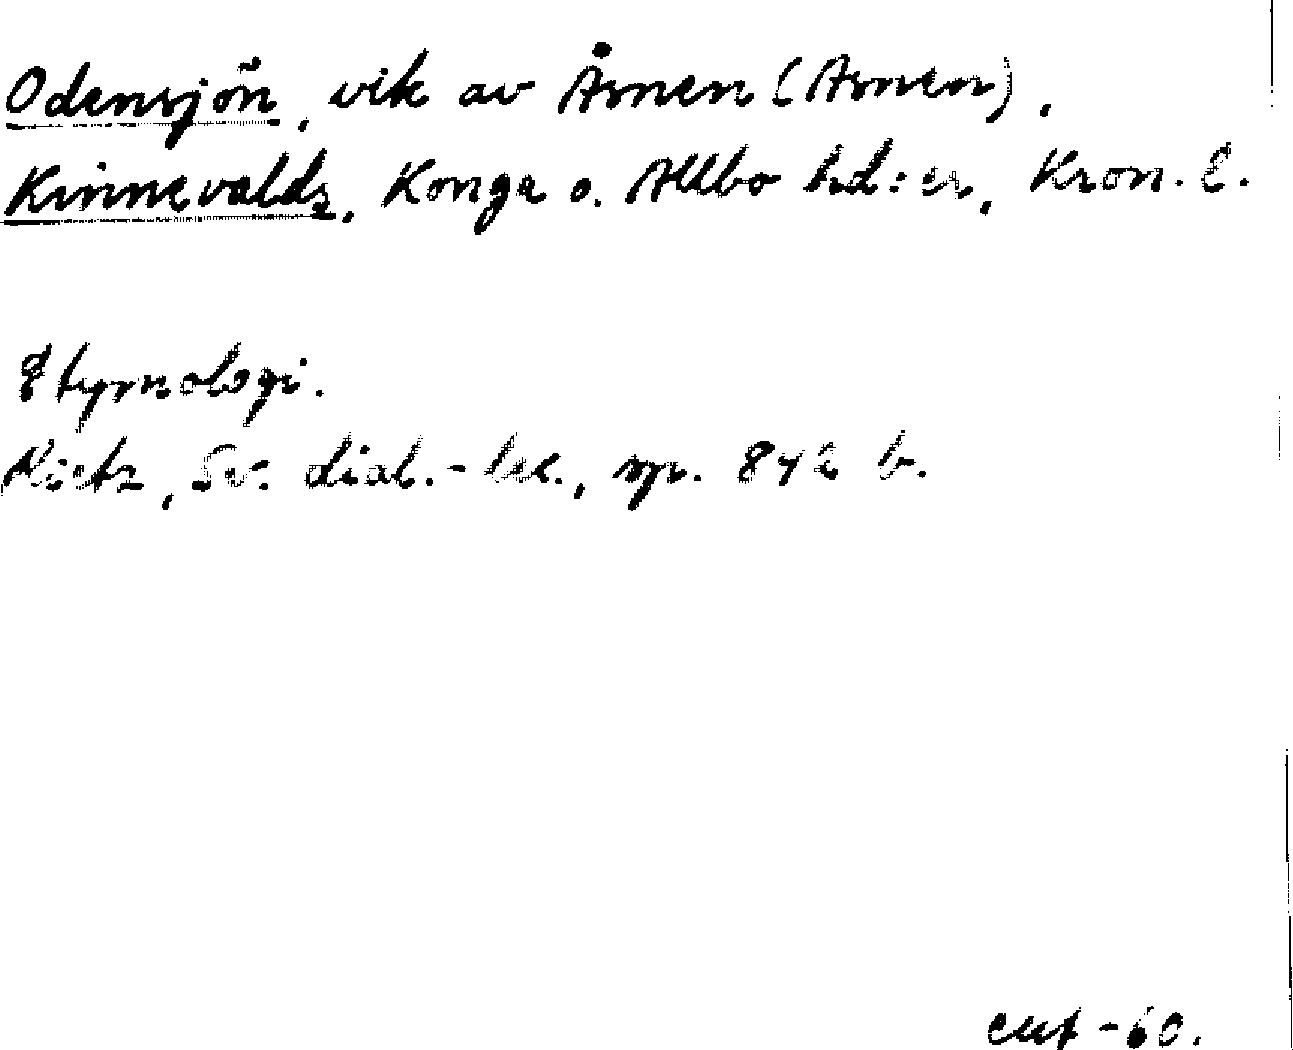 Odensjön, vik av Åsnen (Asnen),
Kinnevalds, Konga o. Allbo hd:er, Kron. l.
Etymologi.
Rietz, Sv. dial.-lex., sp. 842 b.
-60.